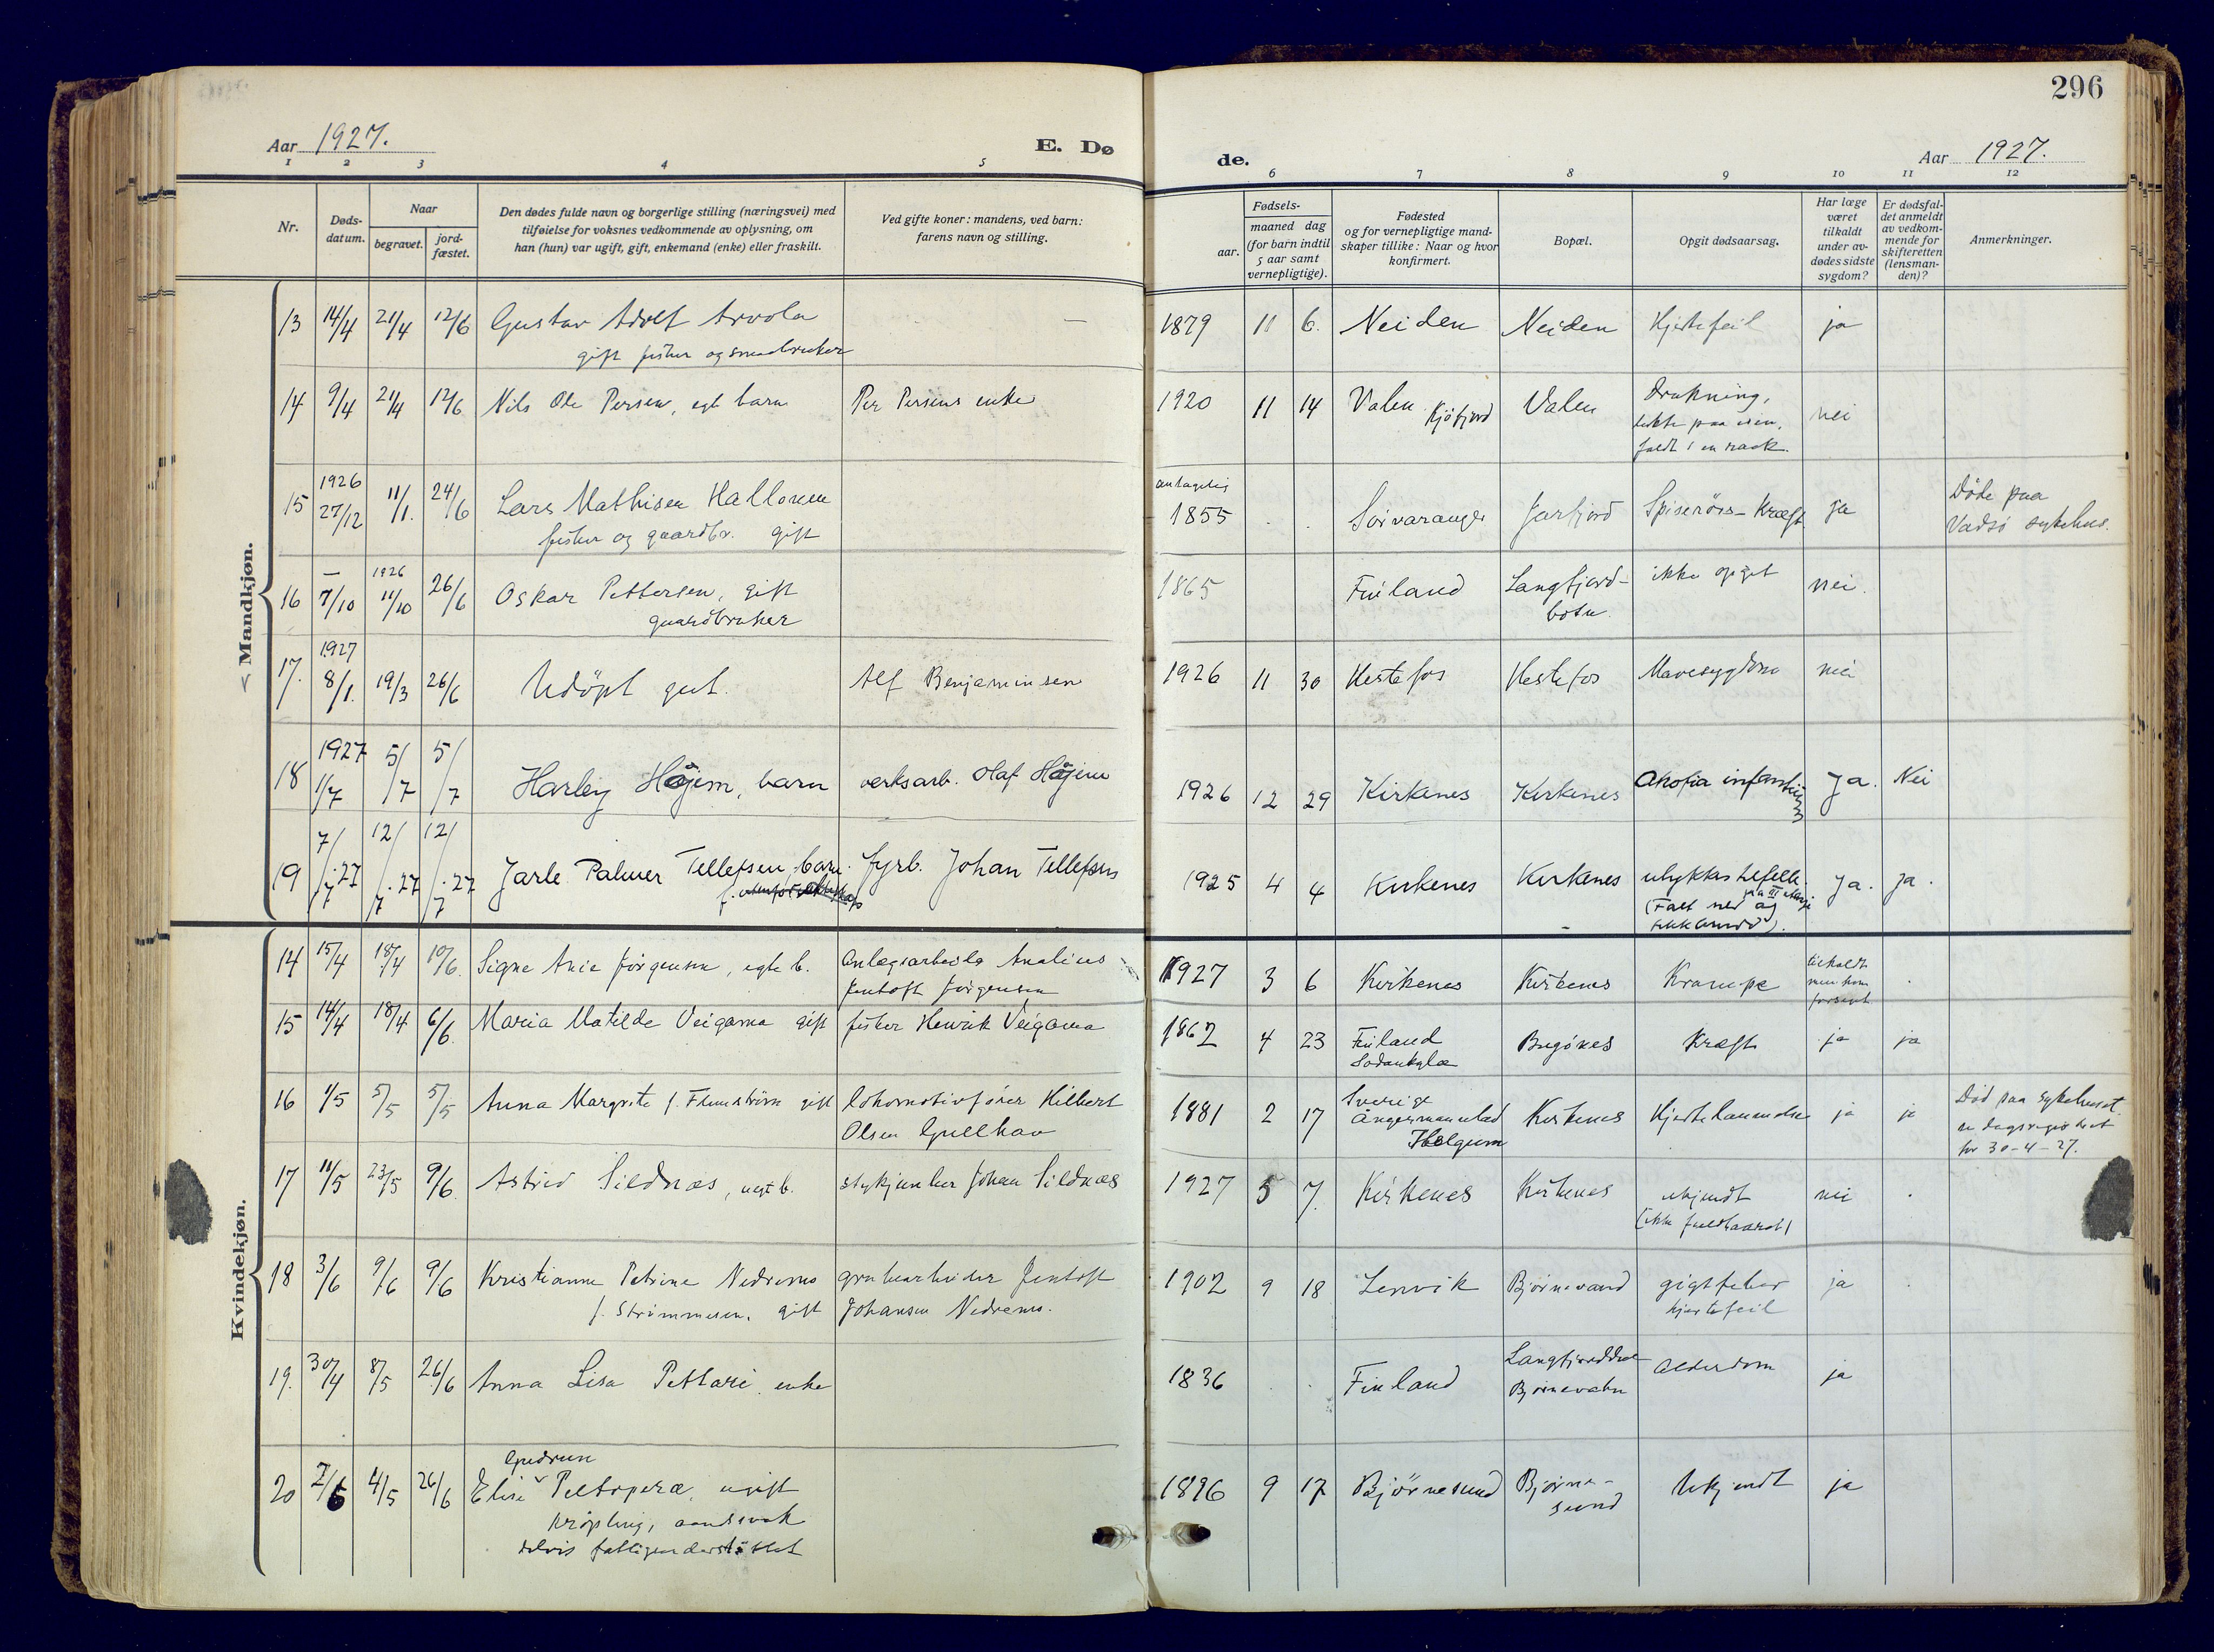 296
Aar 1927.
E. Dø
de.
Aar 1927.
1 2 3 4 5 6 7 8 9 10 11 12
Nr.
Døds-
datum.
Naar
begravet.
jord-
fæstet.
Den dødes fulde navn og borgerlige stilling (næringsvei) med
tilføielse for voksnes vedkommende av oplysning, om
han (hun) var ugift, gift, enkemand (enke) eller fraskilt.
Ved gifte koner: mandens, ved barn:
farens navn og stilling.
Fødsels-
aar.
maaned dag
(for barn indtil
5 aar samt
vernepligtige).
Fødested
og for vernepligtige mand-
skaper tillike: Naar og hvor
konfirmert.
Bopæl.
Opgit dødsaarsag.
Har læge
været
tilkaldt
under av-
dødes sidste
sygdom?
Er dødsfal-
det anmeldt
av vedkom-
mende for
skifteretten
(lensman-
den)?
Anmerkninger.
Mandkjøn.
13 14/4 21/4 12/6 Gustav Adolf Arvola — 1879 11 6. Neiden Neiden Hjertefeil ja
gift fisker og smaabruker
14 9/4 21/4 12/6 Nils Ole Persen, egte barn Per Persens enke 1920 11 14 Valen Kjöfjord Valen Drukning, nei
lekte paa isen,
faldt i en raak.
15 1926 27/12 11/1. 24/6 Lars Mathisen Hallonen antagelig 1855 . . Sörvaranger Jarfjord Spiserörs-Kræft ja Döde paa
fisker og gaardbr. gift Vadsö sykehus.
16 — 7/10 1926 11/10 26/6 Oskar Pettersen, gift 1865 Finland Langfjord- ikke opgit nei.
gaardbruker botn.
17. 1927 8/1. 19/3 26/6 Udöpt gut. Alf Benjaminsen 1926 11 30 Hestefos Hestefos Mavesygdom nei
18 1927 1/7 5/7 5/7 Harley Höjem, barn verksarb. Olaf Höjem 1926 12 29 Kirkenes Kirkenes infantum Ja. Nei
19 7/7.27 12/7.27 12/7.27 Jarle Palmer Tellefsen, barn. fyrb. Johan Tellefsen 1925 4 4 Kirkenes Kirkenes ulykkestilfelle. Ja. Ja.
(Falt ned
Kvindekjøn.
14 15/4 18/4 10/6. Signe Anie Jörgensen, egte b. Anlegsarbeider Analius 1927 3 6 Kirkenes Kirkenes Krampe tilkaldt
Jentoft Jörgensen men kom
forsent
15 14/4 18/4 6/6. Maria Matilde Veigama gift fisker Henrik Veigama 1862 4 23 Finland Bugönes Kræft ja ja
Sodankylæ
16 1/5 5/5 5/5 Anna Margrete f. gift lokomotivförer Hilbert 1881 2 17 Sverige Kirkenes Hjertelammelse ja ja Död paa sykehuset.
Olsen Gullhav Helgum se dagsregistret
for 30-4-27.
17 11/5 23/5 9/6. Astrid Sildnæs, uegte b. Johan Sildnæs 1927 5 7. Kirkenes Kirkenes ukjendt nei
(ikke fuldbaaret)
18 3/6 9/6 9/6 Kristianne Petrine Nedremo grubearbeider Jentoft 1902 9 18 Lenvik Björnevand gigtfeber ja
f. Strömmesen. gift Johansen Nedremo. hjertefeil
19. 30/4 8/5 26/6 Anna Lisa Pettari enke 1836 . . Finland Alderdom ja
Björnevatn
Gudrun
20 2/5 4/5 26/6 Elise Peltoperæ, ugift 1896 9 17 Björnesund Björne- Ukjendt ja
kröpling, aandsvak sund
delvis fattigunderstöttet